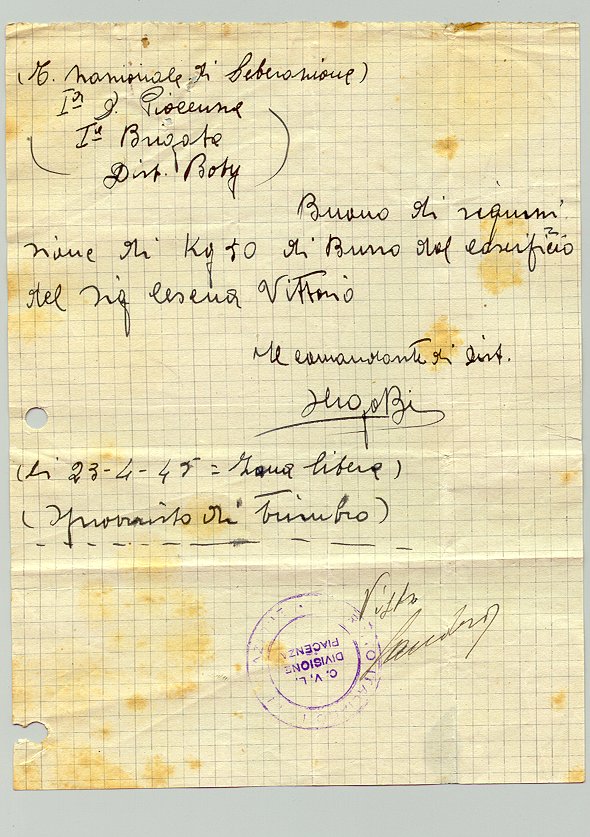 (M. nazionale di Liberazione)
Iª D. Piacenza
Iª Brigata
Dist. Boby
Buono di requisi
zione di Kg 50 di Burro dal caseificio
del sig Cesena Vittorio
Il comandante di Dist.
(li 23-4-45 = Zona libera)
(Sprovvisto di timbro)
Visto
C. V. L.
DIVISIONE
PIACENZA